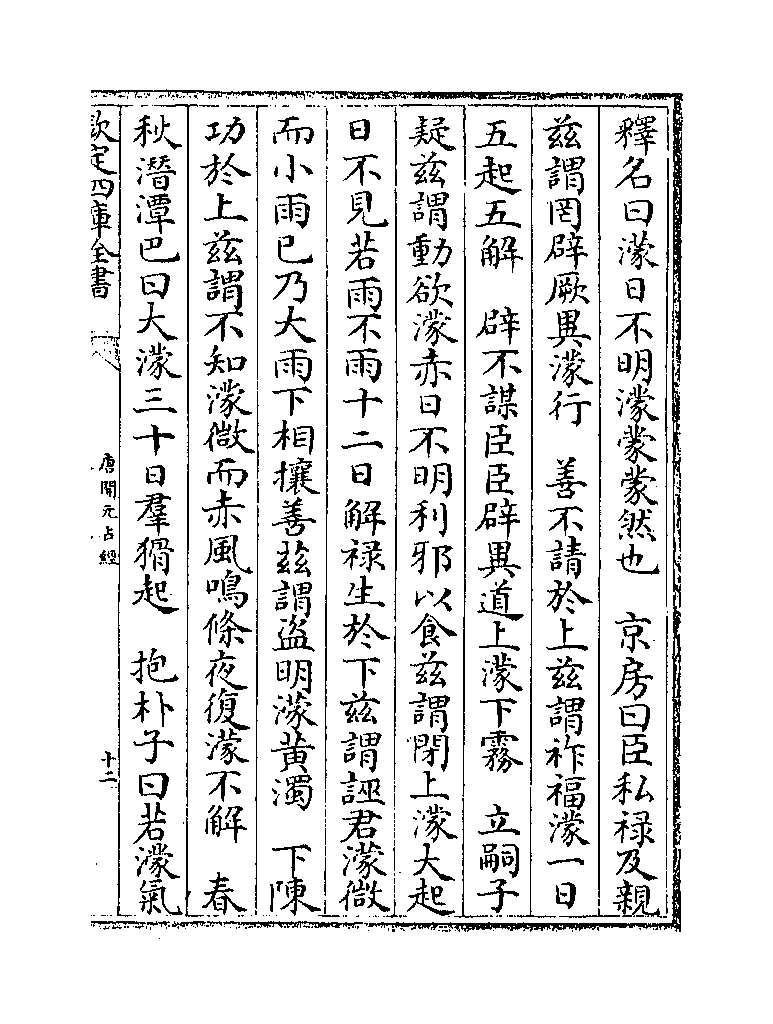 釋名曰濛日不明濛蒙蒙然也　京房曰臣私禄及親
兹謂罔辟厥異濛行　善不請於上兹謂祚福濛一日
五起五解　辟不謀臣臣辟異道上濛下霧　立嗣子
疑兹謂動欲濛赤日不明利邪以食兹謂閉上濛大起
日不見若雨不雨十二日解禄生於下兹謂誣君濛微
而小雨已乃大雨下相攘善兹謂盗明濛黄濁　下陳
功於上兹謂不知濛微而赤風鳴條夜復濛不解　春
秋潛潭巴曰大濛三十日羣猾起　抱朴子曰若濛氣
欽定四庫全書
唐開元占經
十二